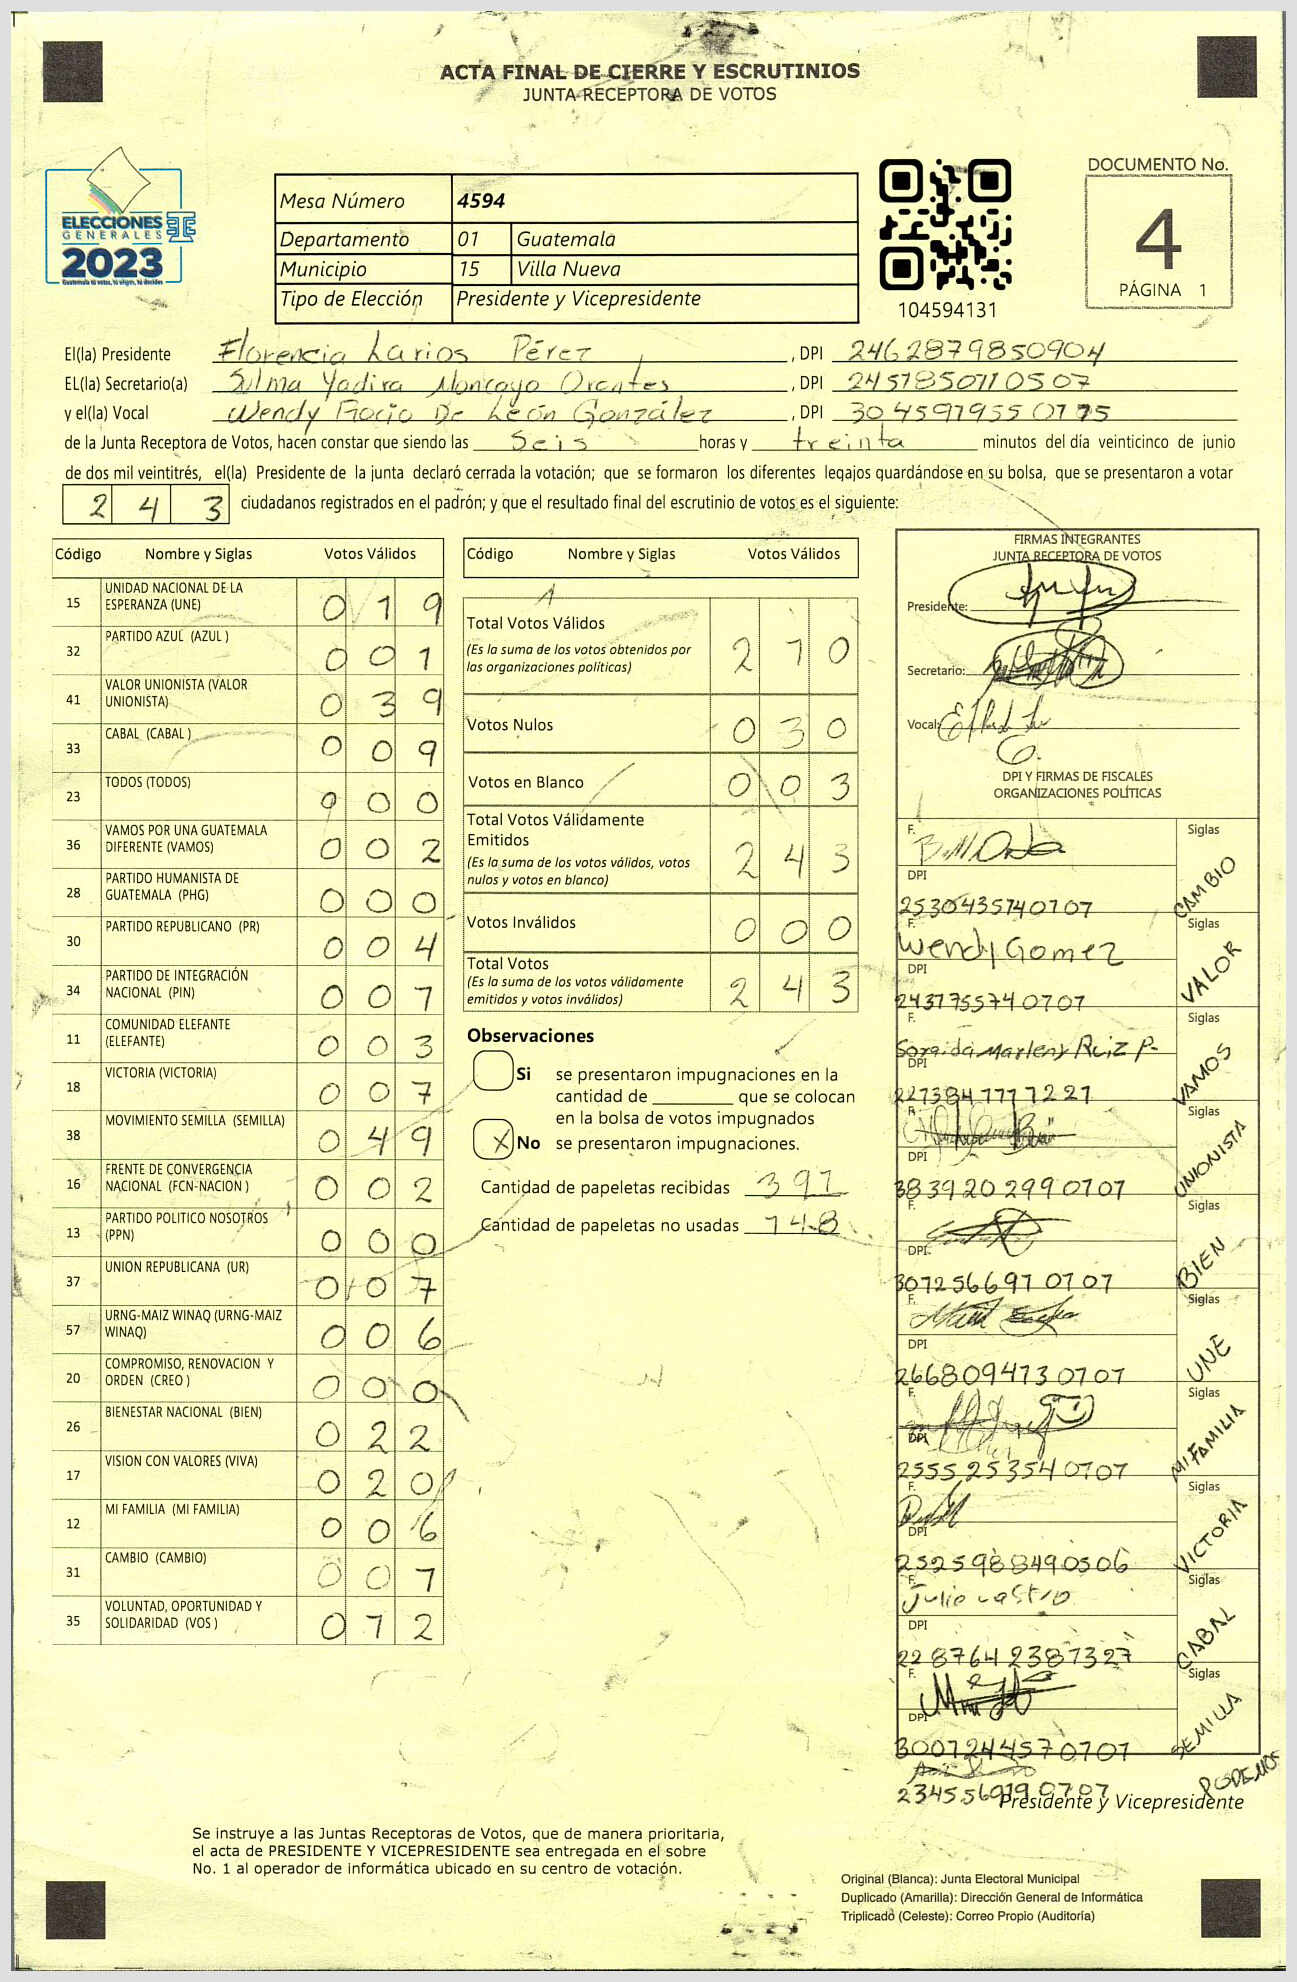 ACTA FINAL DE CIERRE Y ESCRUTINIOS
JUNTA RECEPTORA DE VOTOS
ELECCIONES
GENERALES
2023
Guatemala tú votas, tú eliges, tú decides
Mesa Número 4594
Departamento 01 Guatemala
Municipio 15 Villa Nueva
Tipo de Elección Presidente y Vicepresidente
104594131
DOCUMENTO No.
4
PÁGINA 1
El(la) Presidente Florencia Larios Pérez, DPI 2462879850904
EL(la) Secretario(a) Sulma Yadira Moncayo Orantes, DPI 2451850110507
y el(la) Vocal Wendy Rocío De León González, DPI 3045979550775
de la Junta Receptora de Votos, hacen constar que siendo las seis horas y treinta minutos del día veinticinco de junio
de dos mil veintitrés, el(la) Presidente de la junta declaró cerrada la votación; que se formaron los diferentes legajos guardándose en su bolsa, que se presentaron a votar
243 ciudadanos registrados en el padrón; y que el resultado final del escrutinio de votos es el siguiente:
Código Nombre y Siglas Votos Válidos
15 UNIDAD NACIONAL DE LA ESPERANZA (UNE) 019
32 PARTIDO AZUL (AZUL ) 001
41 VALOR UNIONISTA (VALOR UNIONISTA) 039
33 CABAL (CABAL ) 009
23 TODOS (TODOS) 000
36 VAMOS POR UNA GUATEMALA DIFERENTE (VAMOS) 002
28 PARTIDO HUMANISTA DE GUATEMALA (PHG) 000
30 PARTIDO REPUBLICANO (PR) 004
34 PARTIDO DE INTEGRACIÓN NACIONAL (PIN) 007
11 COMUNIDAD ELEFANTE (ELEFANTE) 003
18 VICTORIA (VICTORIA) 007
38 MOVIMIENTO SEMILLA (SEMILLA) 049
16 FRENTE DE CONVERGENCIA NACIONAL (FCN-NACION ) 002
13 PARTIDO POLITICO NOSOTROS (PPN) 000
37 UNION REPUBLICANA (UR) 007
57 URNG-MAIZ WINAQ (URNG-MAIZ WINAQ) 006
20 COMPROMISO, RENOVACION Y ORDEN (CREO ) 000
26 BIENESTAR NACIONAL (BIEN) 022
17 VISION CON VALORES (VIVA) 020
12 MI FAMILIA (MI FAMILIA) 006
31 CAMBIO (CAMBIO) 007
35 VOLUNTAD, OPORTUNIDAD Y SOLIDARIDAD (VOS ) 012
Código Nombre y Siglas Votos Válidos
Total Votos Válidos 210
(Es la suma de los votos obtenidos por
las organizaciones políticas)
Votos Nulos 030
Votos en Blanco 003
Total Votos Válidamente
Emitidos 243
(Es la suma de los votos válidos, votos
nulos y votos en blanco)
Votos Inválidos 000
Total Votos 243
(Es la suma de los votos válidamente
emitidos y votos inválidos)
Observaciones
Si se presentaron impugnaciones en la
cantidad de ________ que se colocan
en la bolsa de votos impugnados
X No se presentaron impugnaciones.
Cantidad de papeletas recibidas 391
Cantidad de papeletas no usadas 148
FIRMAS INTEGRANTES
JUNTA RECEPTORA DE VOTOS
Presidente:
Secretario:
Vocal:
DPI Y FIRMAS DE FISCALES
ORGANIZACIONES POLÍTICAS
F. Siglas
DPI CAMBIO
2530435740707
F. Wendy Gomez Siglas
DPI VALOR
2437755740707
F. Soraida Marleny Ruiz P. Siglas
DPI VAMOS
2273847777227
F. Siglas
DPI UNIONISTA
3839202990707
F. Siglas
DPI BIEN
3072566970707
F. Siglas
DPI UNE
2668094730707
F. Siglas
DPI MI FAMILIA
2555253540707
F. Siglas
DPI VICTORIA
2525988490506
F. Julio Castro Siglas
DPI CABAL
2287642387327
F. Siglas
DPI SEMILLA
3007244570707
2345569790707 PODEMOS
Presidente y Vicepresidente
Se instruye a las Juntas Receptoras de Votos, que de manera prioritaria,
el acta de PRESIDENTE Y VICEPRESIDENTE sea entregada en el sobre
No. 1 al operador de informática ubicado en su centro de votación.
Original (Blanca): Junta Electoral Municipal
Duplicado (Amarilla): Dirección General de Informática
Triplicado (Celeste): Correo Propio (Auditoría)